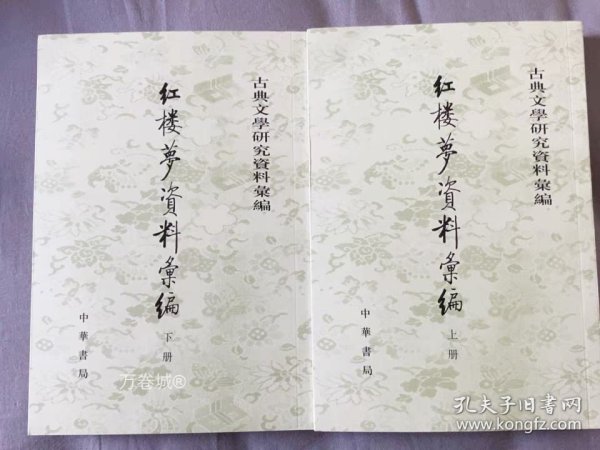 古典文學研究資料彙編
红楼夢資料彙编
下册
中華書局
万卷城®
古典文學研究資料彙編
红楼夢資料彙编
上册
中華書局
孔夫子旧书网
www.kongfz.com